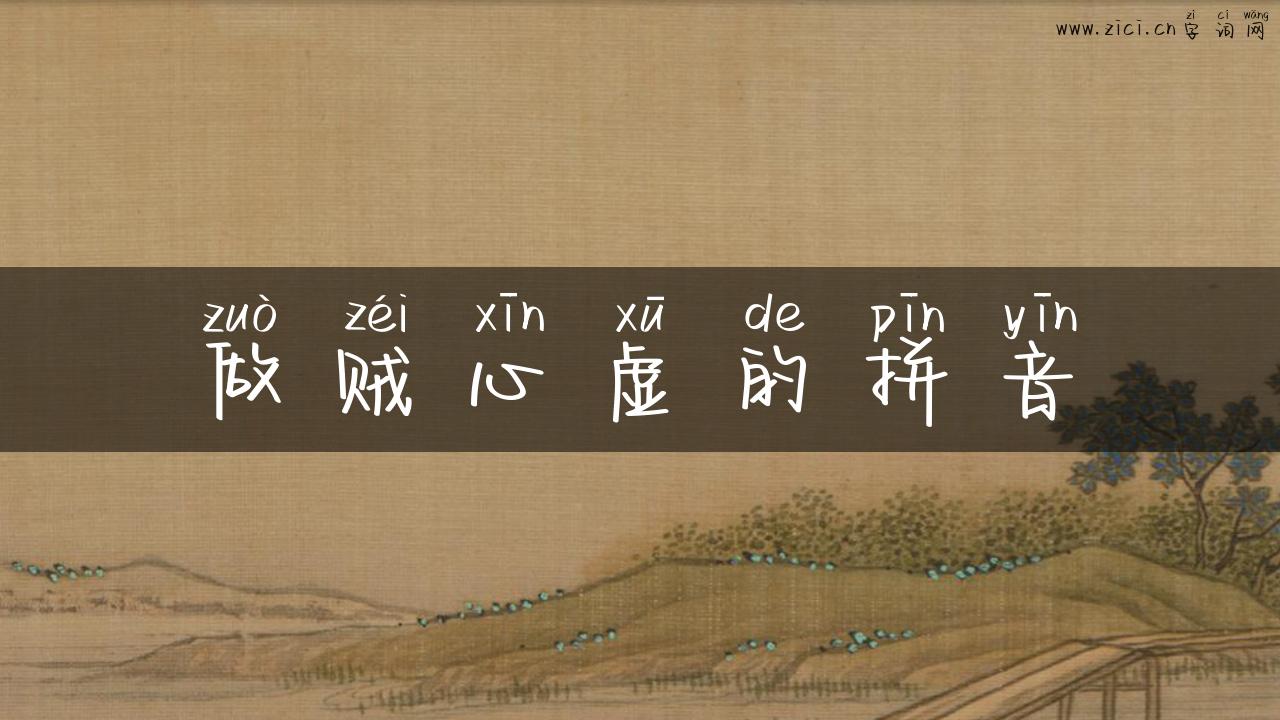 zì cí wǎng
www.zici.cn字词网
zuò zéi xīn xū de pīn yīn
做贼心虚的拼音